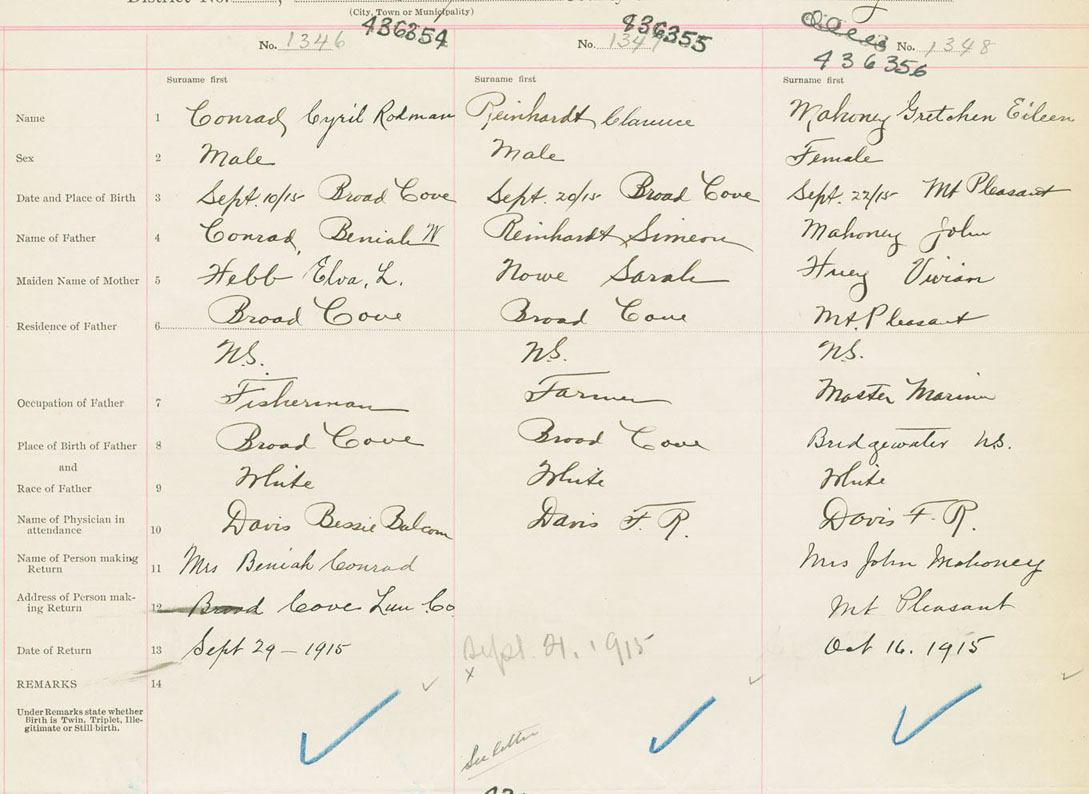 District No.
(City, Town or Municipality)
No. 1346 436354 No. 1347 836355 No. 1348
436356
Surname first Surname first Surname first
Name 1 Conrad, Cyril Rodman Reinhardt, Clarence Mahoney Gretchen Eileen
Sex 2 Male Male Female
Date and Place of Birth 3 Sept. 10/15 Broad Cove Sept. 20/15 Broad Cove Sept. 22/15 Mt Pleasant
Name of Father 4 Conrad, Beniah W Reinhardt, Simeon Mahoney John
Maiden Name of Mother 5 Hebb Elva, L. Nowe Sarah Huey Vivian
Residence of Father 6 Broad Cove Broad Cove Mt. Pleasant
N.S. N.S. N.S.
Occupation of Father 7 Fisherman Farmer Master Mariner
Place of Birth of Father 8 Broad Cove Broad Cove Bridgewater N.S.
and
Race of Father 9 White White White
Name of Physician in
attendance 10 Davis Bessie Balcom Davis F. R. Davis F. R.
Name of Person making
Return 11 Mrs Beniah Conrad Mrs John Mahoney
Address of Person mak-
ing Return 12 Broad Cove Lun Co Mt Pleasant
Date of Return 13 Sept 29 - 1915 Sept. 21. 1915 Oct 16. 1915
x
REMARKS 14
Under Remarks state whether
Birth is Twin, Triplet, Ille-
gitimate or Still-birth.
See letter